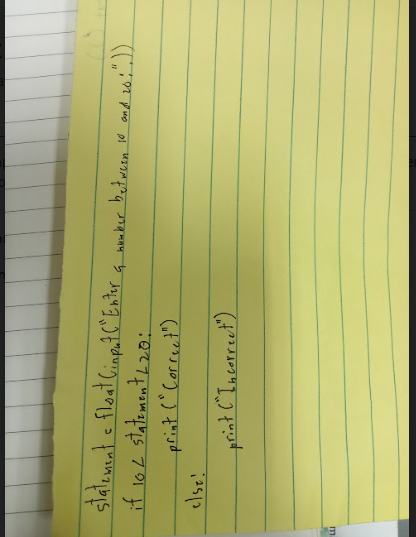 statement = float(input("Enter a number between 10 and 20:"))
if 10 < statement < 20:
print("Correct")
else:
print("Incorrect")